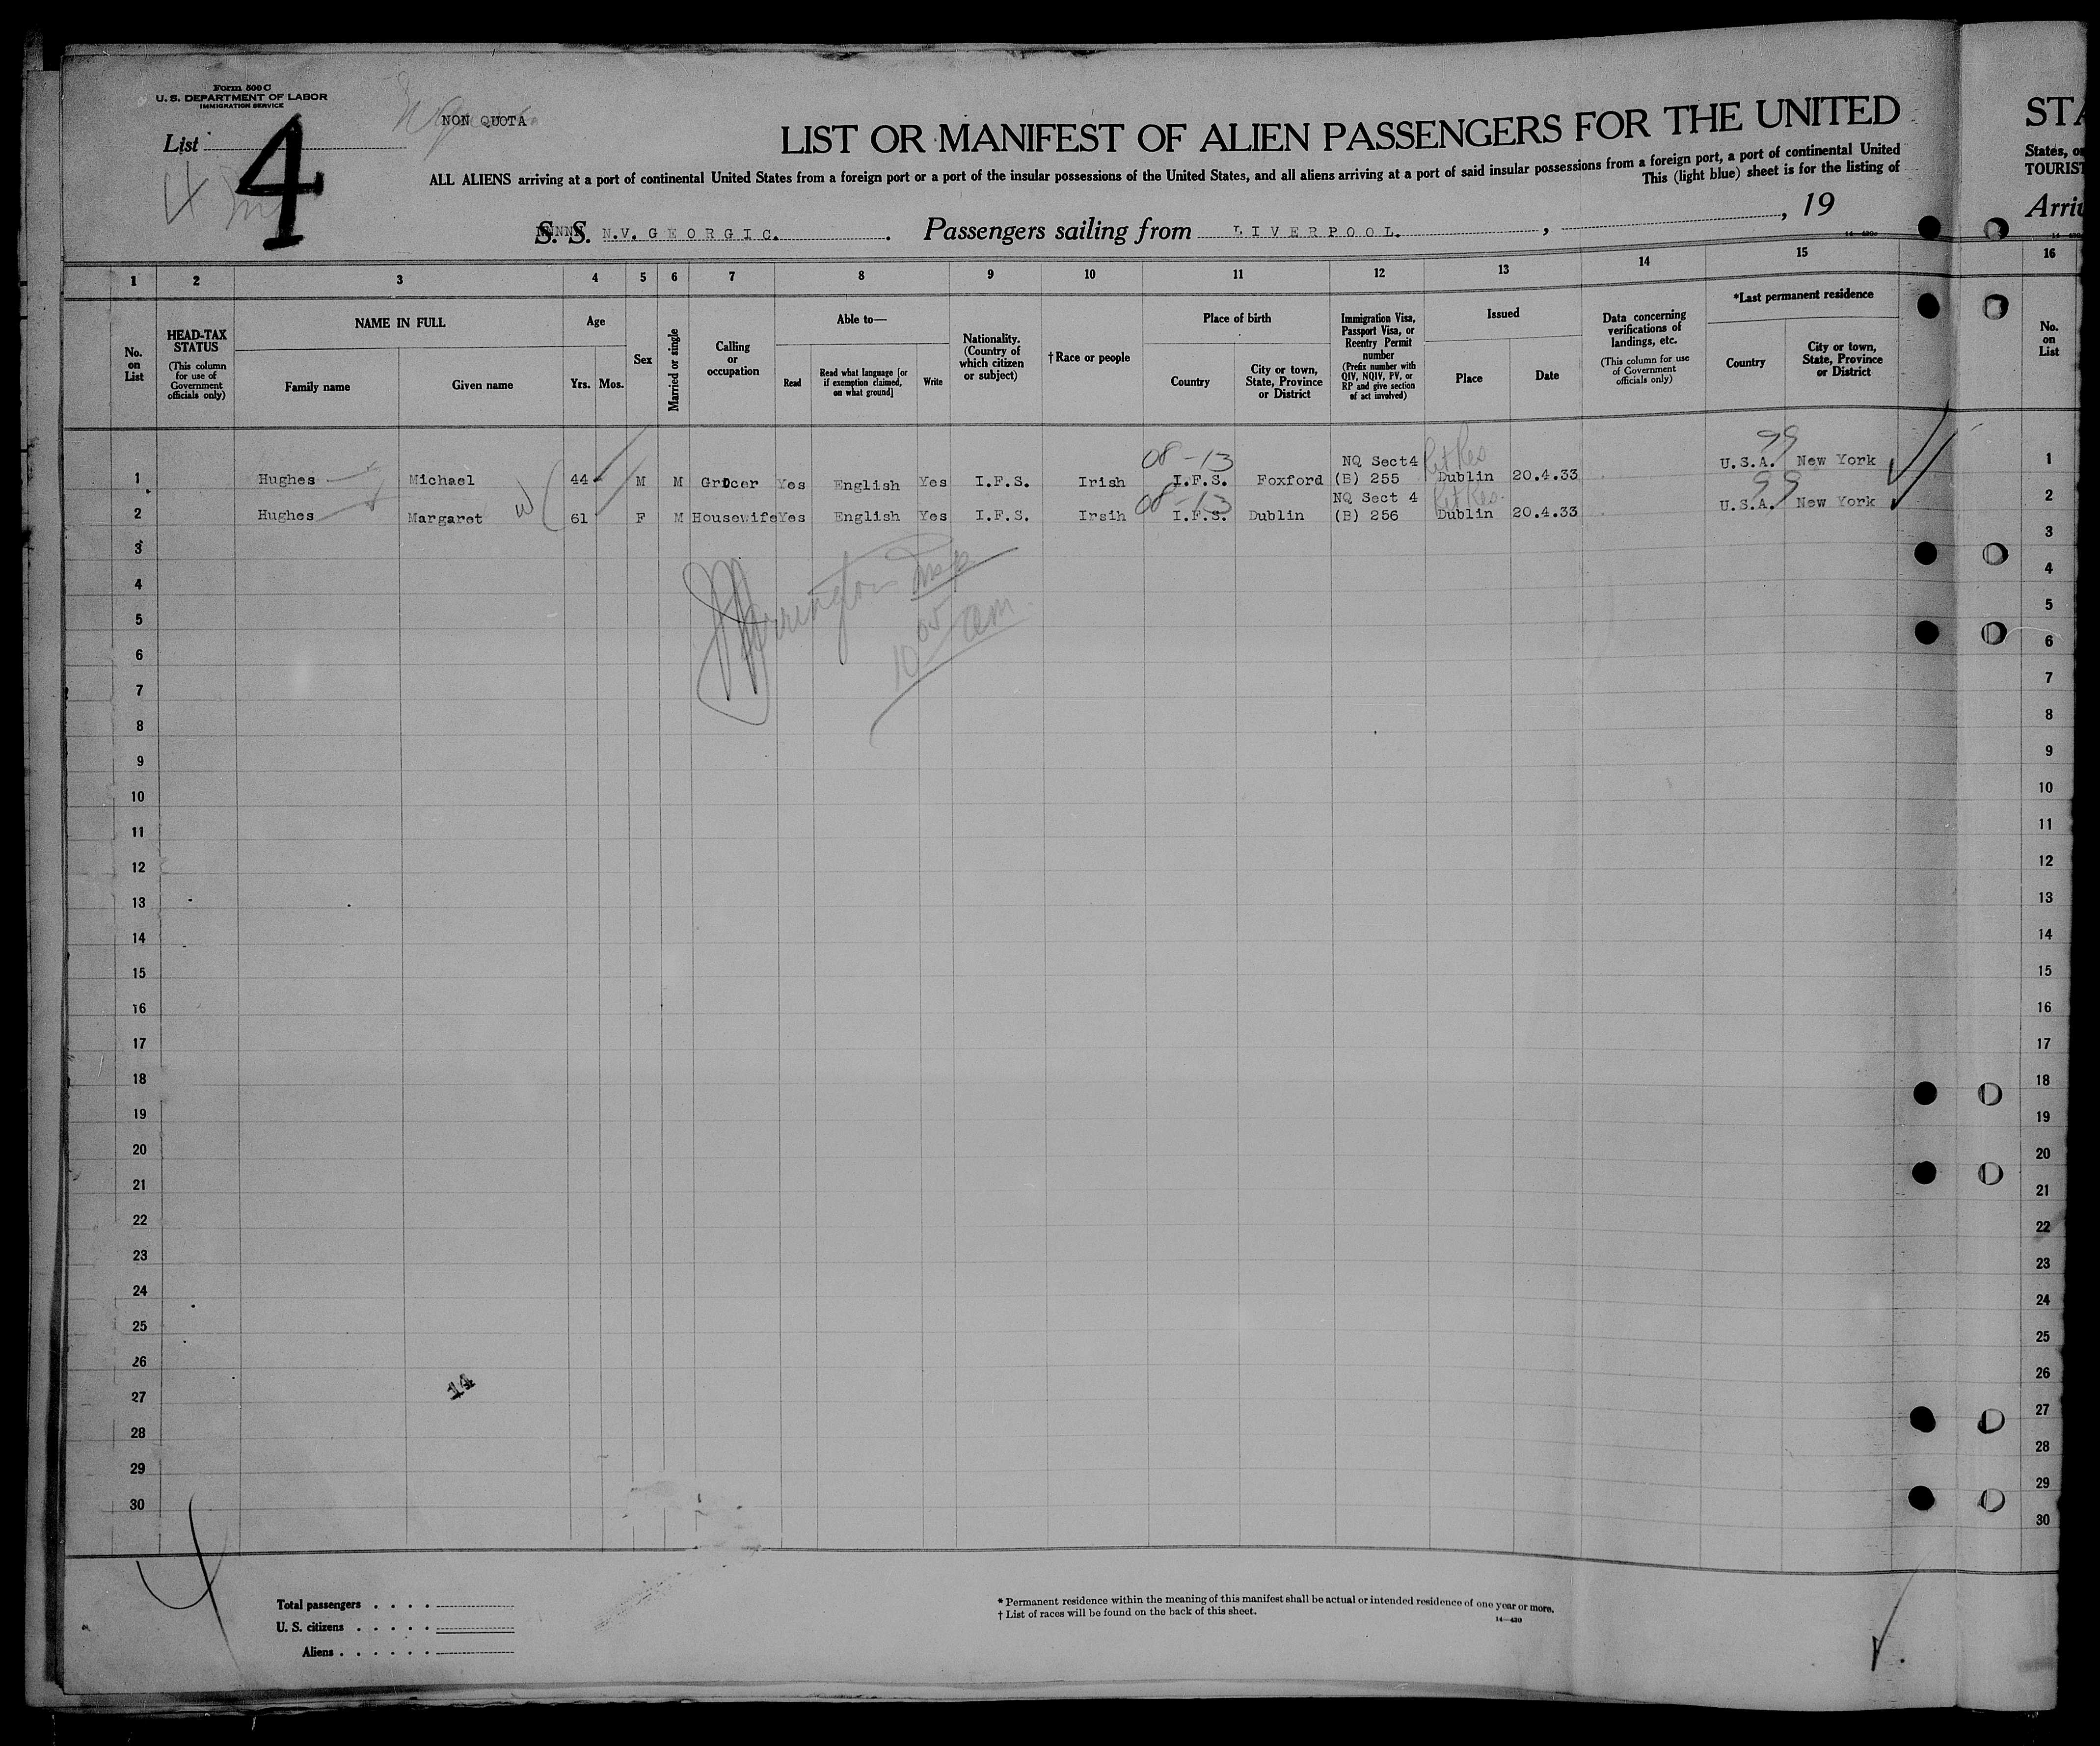 Form 500 C
U. S. DEPARTMENT OF LABOR
IMMIGRATION SERVICE
NON QUOTA
List 4
LIST OR MANIFEST OF ALIEN PASSENGERS FOR THE UNITED
STA
ALL ALIENS arriving at a port of continental United States from a foreign port or a part of the insular possessions of the United States, and all aliens arriving at a port of said insular possessions from a foreign port, a port of continental United
States, or
This (light blue) sheet is for the listing of
TOURIST
S. S. N.V. GEORGIC. Passengers sailing from LIVERPOOL. , , 19
Arriv
14—430
1 2 3 4 5 6 7 8 9 10 11 12 13 14 15 16
No. on List
HEAD-TAX STATUS (This column for use of Government officials only)
NAME IN FULL
Family name
Given name
Age
Yrs. Mos.
Sex
Married or single
Calling or occupation
Able to—
Read
Read what language [or if exemption claimed, on what ground]
Write
Nationality. (Country of which citizen or subject)
†Race or people
Place of birth
Country
City or town, State, Province or District
Immigration Visa, Passport Visa, or Reentry Permit number (Prefix number with QIV, NQIV, PV, or RP and give section of act involved)
Issued
Place
Date
Data concerning verifications of landings, etc. (This column for use of Government officials only)
*Last permanent residence
Country
City or town, State, Province or District
No. on List
08-13 99
1 Hughes Michael 44 M M Grocer Yes English Yes I.F.S. Irish I.F.S. Foxford NQ Sect4 (B) 255 Dublin 20.4.33 U.S.A. New York 1
08-13 99
2 Hughes Margaret 61 F M Housewife Yes English Yes I.F.S. Irsih I.F.S. Dublin NQ Sect 4 (B) 256 Dublin 20.4.33 U.S.A. New York 2
3 3
4 4
5 5
10 05 am
6 6
7 7
8 8
9 9
10 10
11 11
12 12
13 13
14 14
15 15
16 16
17 17
18 18
19 19
20 20
21 21
22 22
23 23
24 24
25 25
26 26
14
27 27
28 28
29 29
30 30
Total passengers . . . .
U. S. citizens . . . . .
Aliens . . . . . .
* Permanent residence within the meaning of this manifest shall be actual or intended residence of one year or more.
† List of races will be found on the back of this sheet.
14—430